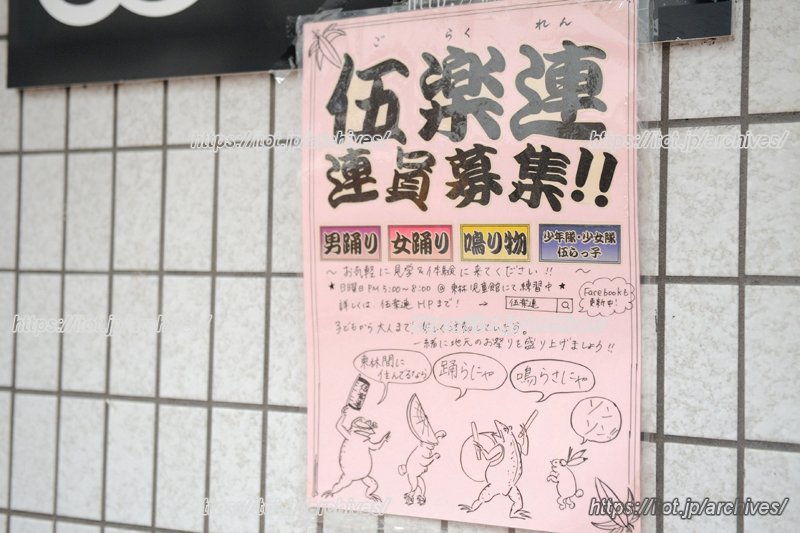 ごらくれん
伍楽連
連員募集!!
男踊り 女踊り 鳴り物 少年隊・少女隊 伍らっ子
～お気軽に見学&体験に来てください!!～
★日曜日PM5:00~8:00@東林児童館にて練習中★
詳しくは、伍楽連HPまで! → 伍楽連
Facebookも
更新中!
子どもから大人まで、楽しく活動しています。
一緒に地元のお祭りを盛り上げましょう!!
東林間に
住んでるなら
踊らにゃ
鳴らさにゃ
ソンソン
伍楽連
https://itot.jp/archives/
https://itot.jp/archives/
https://itot.jp/archives/
https://itot.jp/archives/